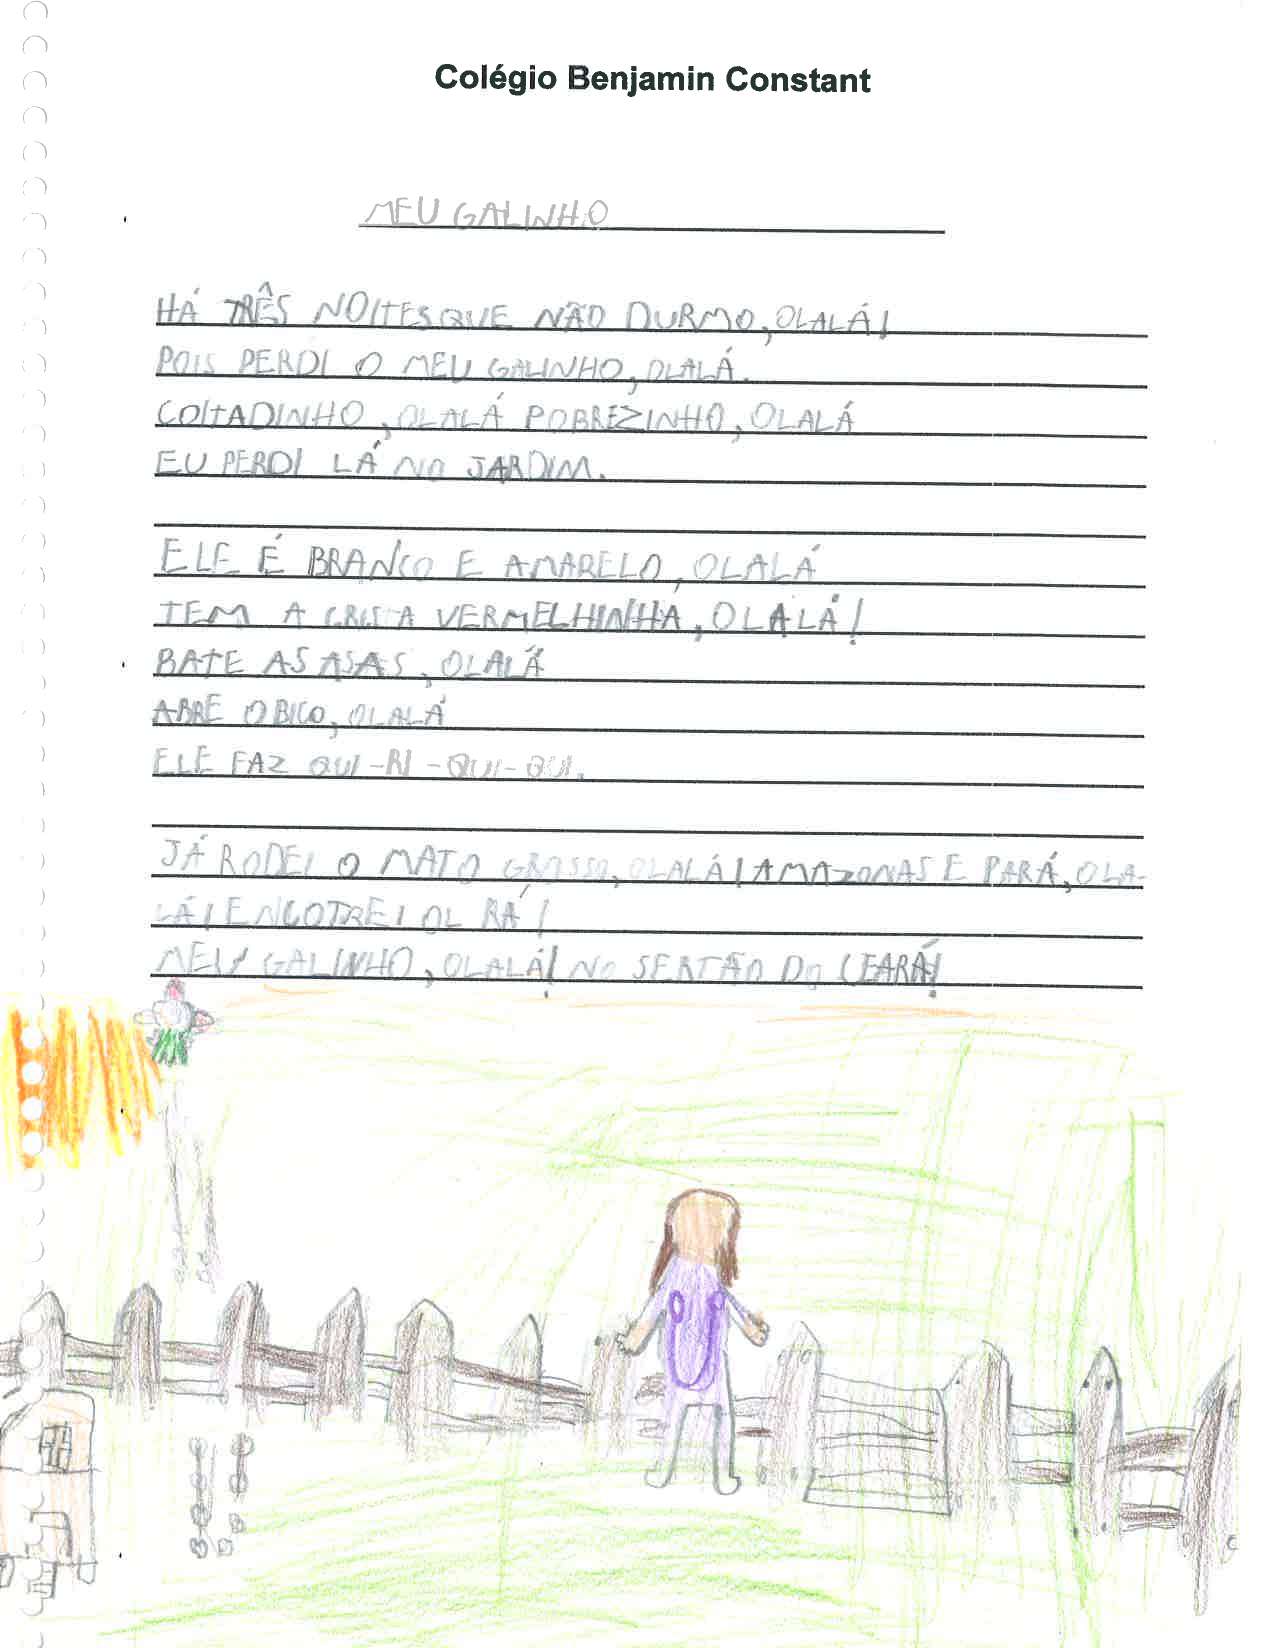 Colégio Benjamin Constant
MEU GALINHO
HÁ TRÊS NOITES QUE NÃO DURMO, OLALÁ!
POIS PERDI O MEU GALINHO, OLALÁ.
COITADINHO, OLALÁ POBREZINHO, OLALÁ
EU PERDI LÁ NO JARDIM.
ELE É BRANCO E AMARELO, OLALÁ
TEM A CRISTA VERMELHINHA, OLALÁ!
BATE AS ASAS, OLALÁ
ABRE O BICO, OLALÁ
ELE FAZ QUI-RI-QUI-QUI.
JÁ RODEI O MATO GROSSO, OLALÁ! AMAZONAS E PARÁ, OLA-
LÁ! ENCOTREI OL RÁ!
MEU GALINHO, OLALÁ! NO SERTÃO DO CEARÁ!